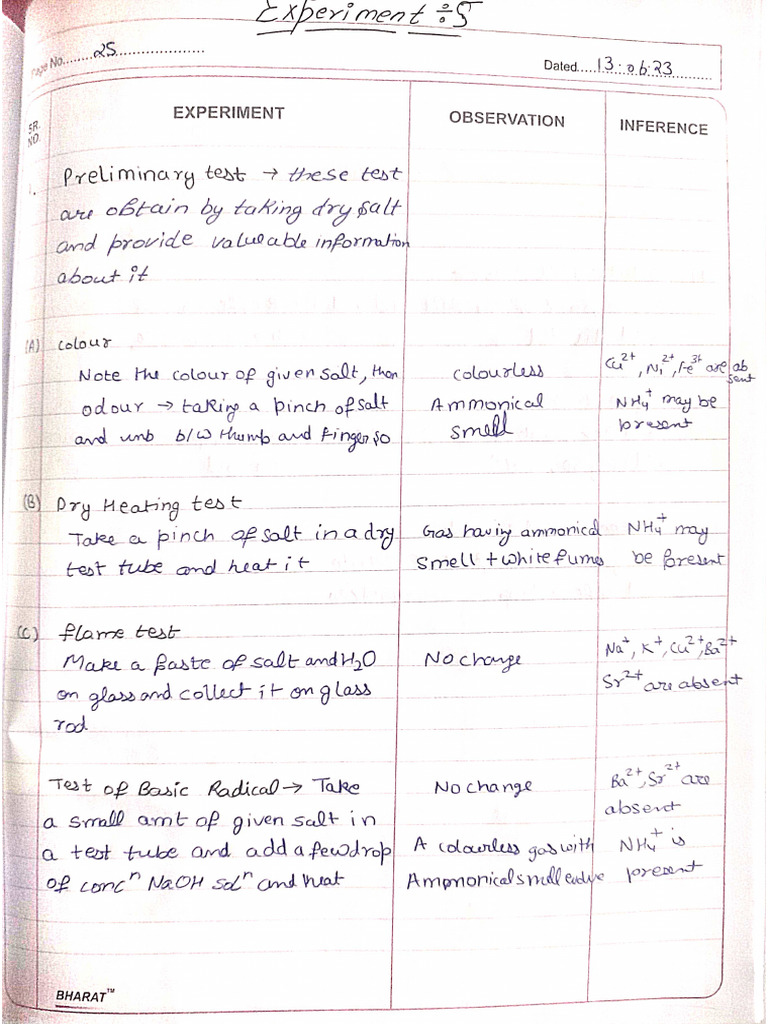 Experiment ÷5
Page No. 25
Dated 13:06:23
SR. NO.
EXPERIMENT
OBSERVATION
INFERENCE
1. Preliminary test → these test
are obtain by taking dry salt
and provide valueable information
about it
(A) colour
Note the colour of given salt, than
colourless
Cu²⁺, Ni²⁺, Fe³⁺ are absent
odour → taking a pinch of salt
Ammonical
NH₄⁺ may be
and unb b/w thumb and finger so
smell
present
(B) Dry Heating test
Take a pinch of salt in a dry
Gas having ammonical
NH₄⁺ may
test tube and heat it
smell + white fumes
be present
(C) flame test
Make a paste of salt and H₂O
No change
Na⁺, K⁺, Cu²⁺, Ba²⁺
on glass and collect it on glass
Sr²⁺ are absent
rod
Test of Basic Radical → Take
No change
Ba²⁺, Sr²⁺ are
a small amt of given salt in
absent
a test tube and add a few drop
A colourless gas with
NH₄⁺ is
of concⁿ NaOH solⁿ and heat
Ammonical smell evolve
present
BHARAT™